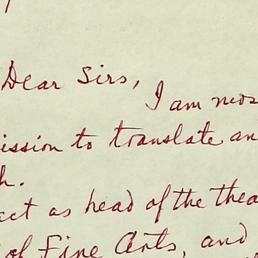 Dear Sirs,
I am mos
ission to translate an
h.
act as head of the thea
of Fine Arts, and